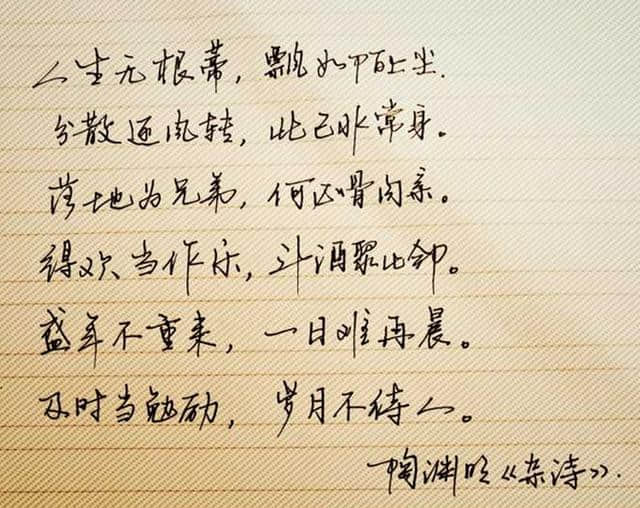 人生无根蒂，飘如陌上尘.
分散逐风转，此已非常身。
落地为兄弟，何必骨肉亲。
得欢当作乐，斗酒聚比邻。
盛年不重来，一日难再晨。
及时当勉励，岁月不待人。
陶渊明《杂诗》.